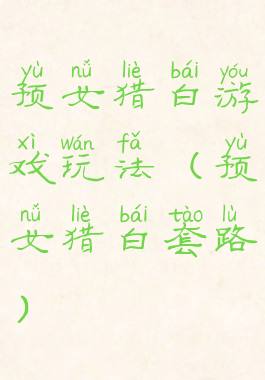 yù nǚ liè bái yóu
预女猎白游
xì wán fǎ yù
戏玩法(预
nǚ liè bái tào lù
女猎白套路
)